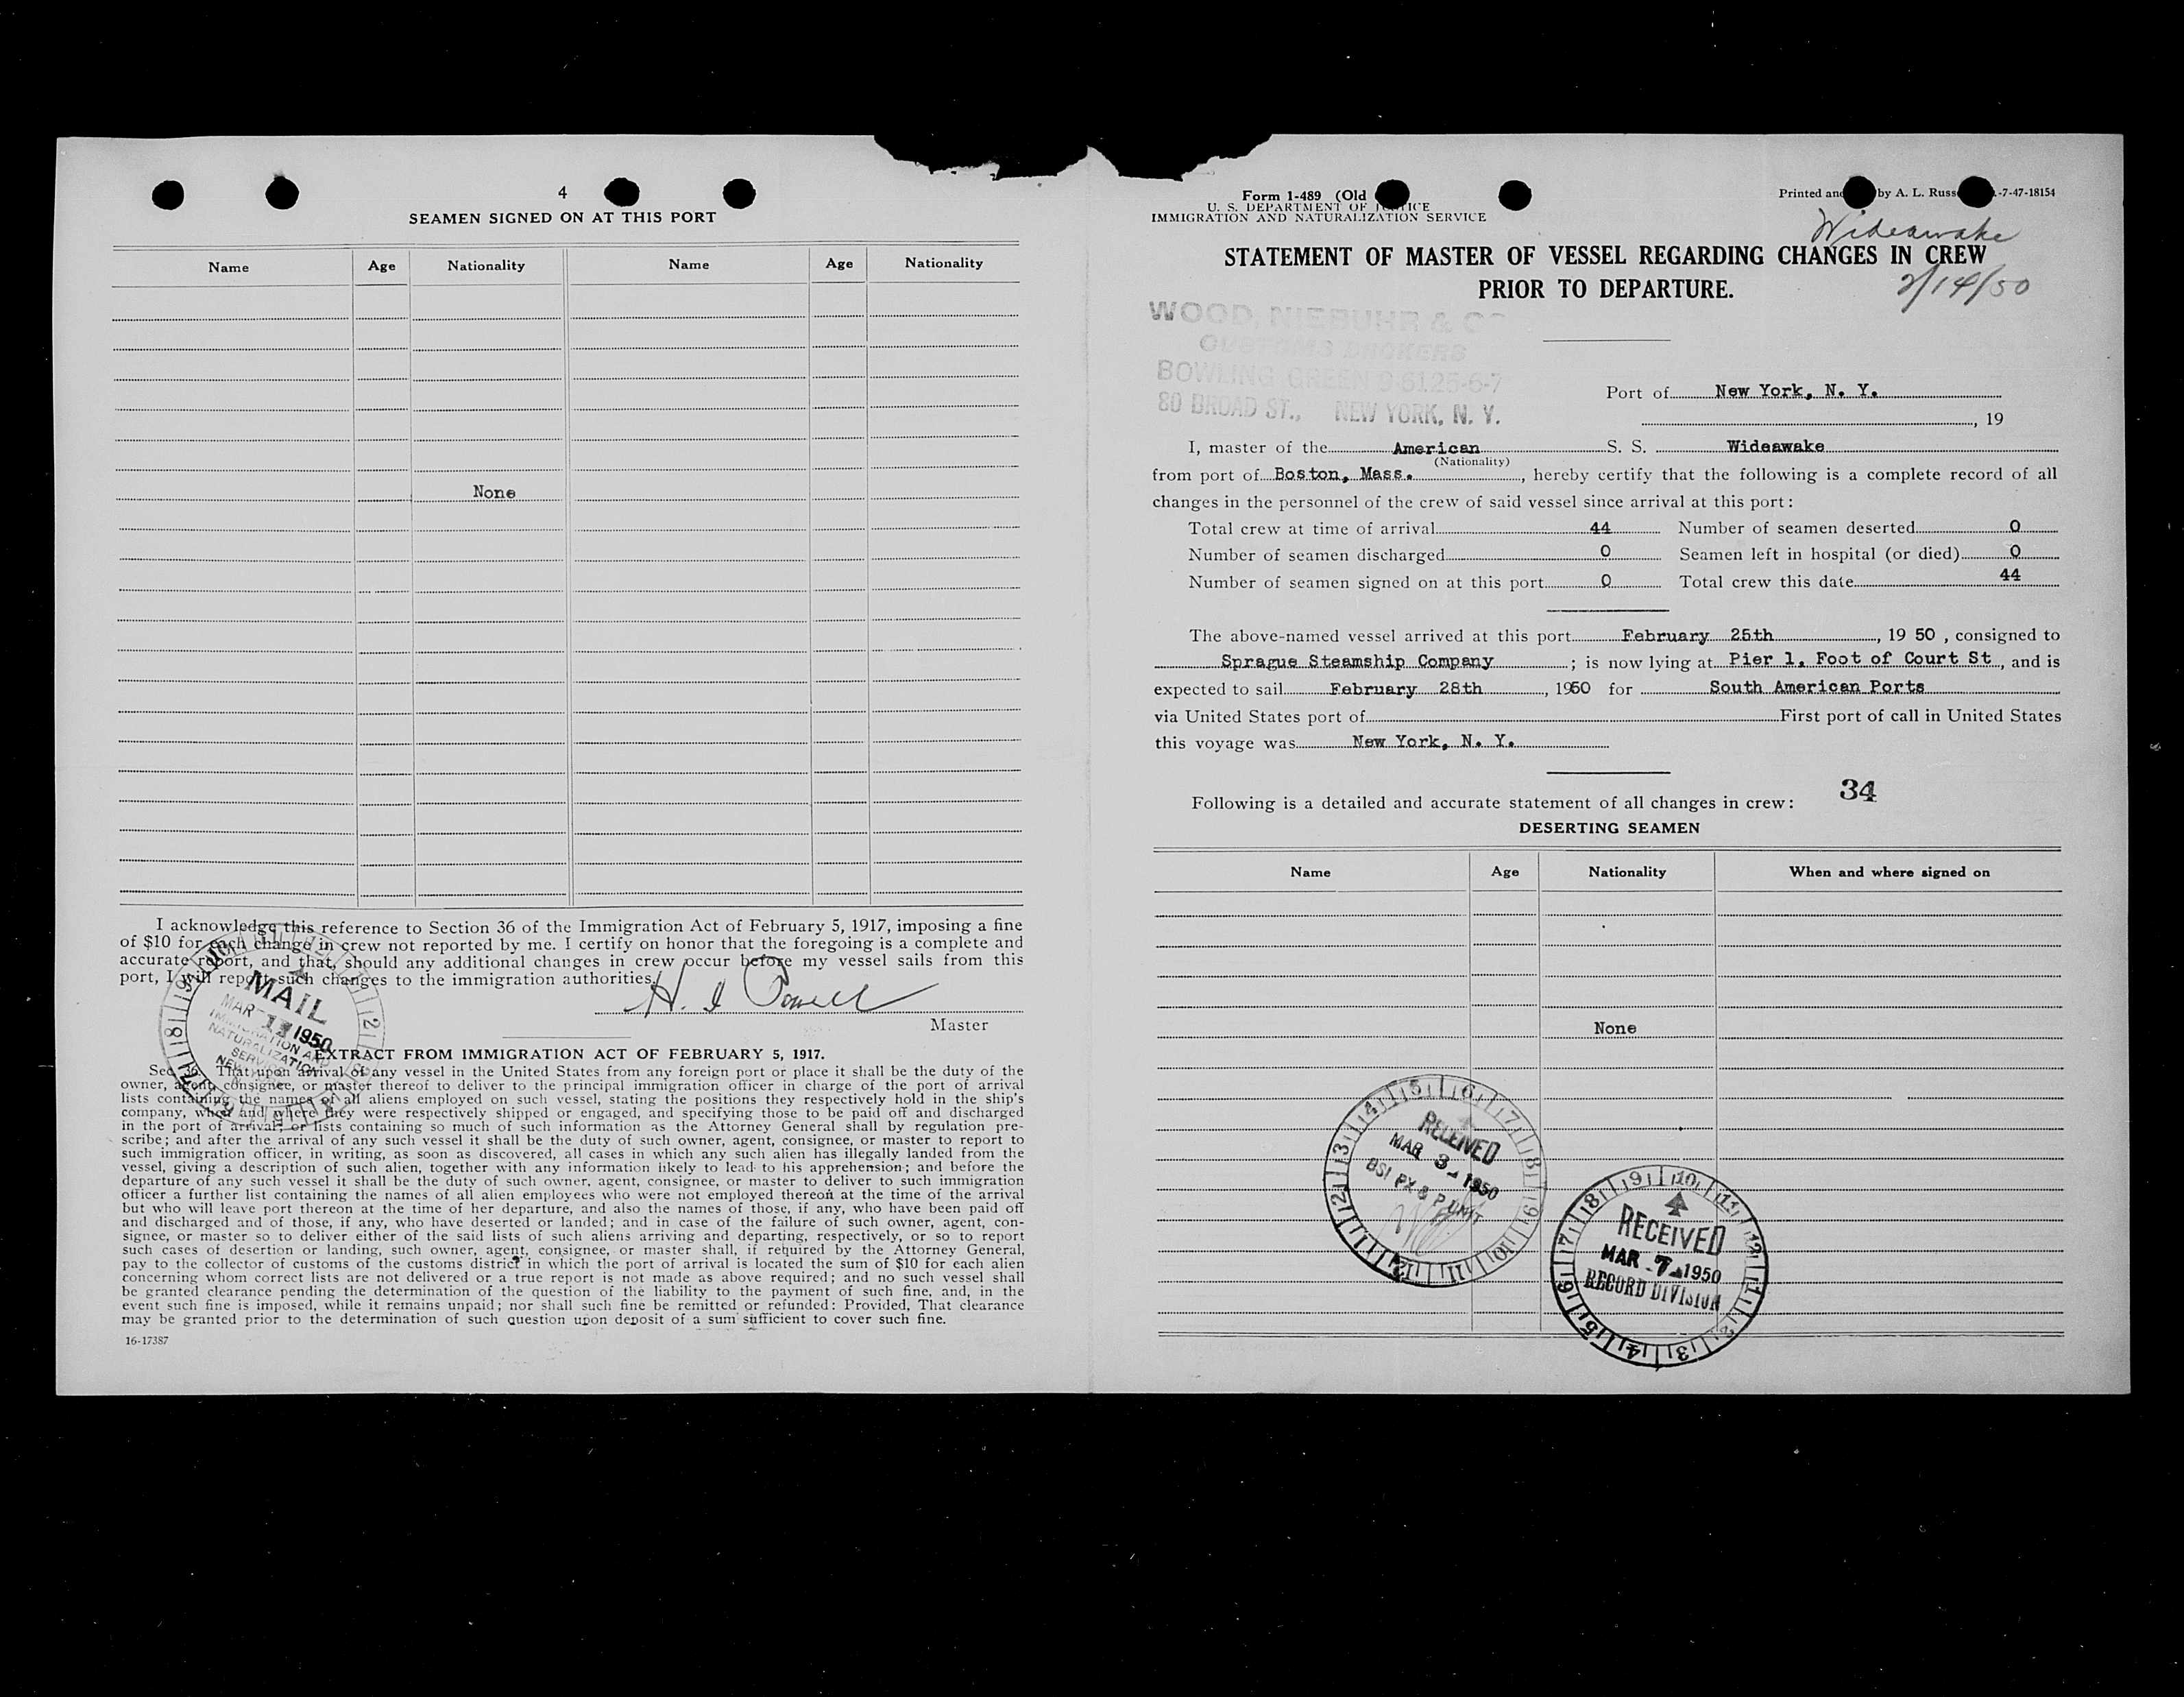 4
SEAMEN SIGNED ON AT THIS PORT
Name Age Nationality Name Age Nationality
None
I acknowledge this reference to Section 36 of the Immigration Act of February 5, 1917, imposing a fine
of $10 for each change in crew not reported by me. I certify on honor that the foregoing is a complete and
accurate report, and that, should any additional changes in crew occur before my vessel sails from this
port, I will report such changes to the immigration authorities.
H. I Powell
Master
MAIL
MAR 1950
IMMIGRATION AND
NATURALIZATION
EXTRACT FROM IMMIGRATION ACT OF FEBRUARY 5, 1917.
Sec. 36. That upon arrival of any vessel in the United States from any foreign port or place it shall be the duty of the
owner, agent, consignee, or master thereof to deliver to the principal immigration officer in charge of the port of arrival
lists containing the names of all aliens employed on such vessel, stating the positions they respectively hold in the ship's
company, when and where they were respectively shipped or engaged, and specifying those to be paid off and discharged
in the port of arrival; or lists containing so much of such information as the Attorney General shall by regulation pre-
scribe; and after the arrival of any such vessel it shall be the duty of such owner, agent, consignee, or master to report to
such immigration officer, in writing, as soon as discovered, all cases in which any such alien has illegally landed from the
vessel, giving a description of such alien, together with any information likely to lead to his apprehension; and before the
departure of any such vessel it shall be the duty of such owner, agent, consignee, or master to deliver to such immigration
officer a further list containing the names of all alien employees who were not employed thereon at the time of the arrival
but who will leave port thereon at the time of her departure, and also the names of those, if any, who have been paid off
and discharged and of those, if any, who have deserted or landed; and in case of the failure of such owner, agent, con-
signee, or master so to deliver either of the said lists of such aliens arriving and departing, respectively, or so to report
such cases of desertion or landing, such owner, agent, consignee, or master shall, if required by the Attorney General,
pay to the collector of customs of the customs district in which the port of arrival is located the sum of $10 for each alien
concerning whom correct lists are not delivered or a true report is not made as above required; and no such vessel shall
be granted clearance pending the determination of the question of the liability to the payment of such fine, and, in the
event such fine is imposed, while it remains unpaid; nor shall such fine be remitted or refunded: Provided, That clearance
may be granted prior to the determination of such question upon deposit of a sum sufficient to cover such fine.
16-17387
Form 1-489 (Old
U. S. DEPARTMENT OF JUSTICE
IMMIGRATION AND NATURALIZATION SERVICE
Printed and by A. L. Russ -7-47-18154
Wideawake
STATEMENT OF MASTER OF VESSEL REGARDING CHANGES IN CREW
PRIOR TO DEPARTURE.
2/14/50
WOOD, NIEBUHR & CO
CUSTOMS BROKERS
BOWLING GREEN 9-6125-6-7
80 BROAD ST., NEW YORK, N. Y.
Port of New York, N. Y.
, 19
I, master of the American S. S. Wideawake
(Nationality)
from port of Boston, Mass. , hereby certify that the following is a complete record of all
changes in the personnel of the crew of said vessel since arrival at this port:
Total crew at time of arrival 44 Number of seamen deserted 0
Number of seamen discharged 0 Seamen left in hospital (or died) 0
Number of seamen signed on at this port 0 Total crew this date 44
The above-named vessel arrived at this port February 25th , 19 50 , consigned to
Sprague Steamship Company ; is now lying at Pier 1, Foot of Court St , and is
expected to sail February 28th , 1950 for South American Ports
via United States port of First port of call in United States
this voyage was New York, N. Y.
34
Following is a detailed and accurate statement of all changes in crew:
DESERTING SEAMEN
Name Age Nationality When and where signed on
None
RECEIVED
MAR 3 1950
BSI PX & P UNIT
RECEIVED
MAR 7 1950
RECORD DIVISION